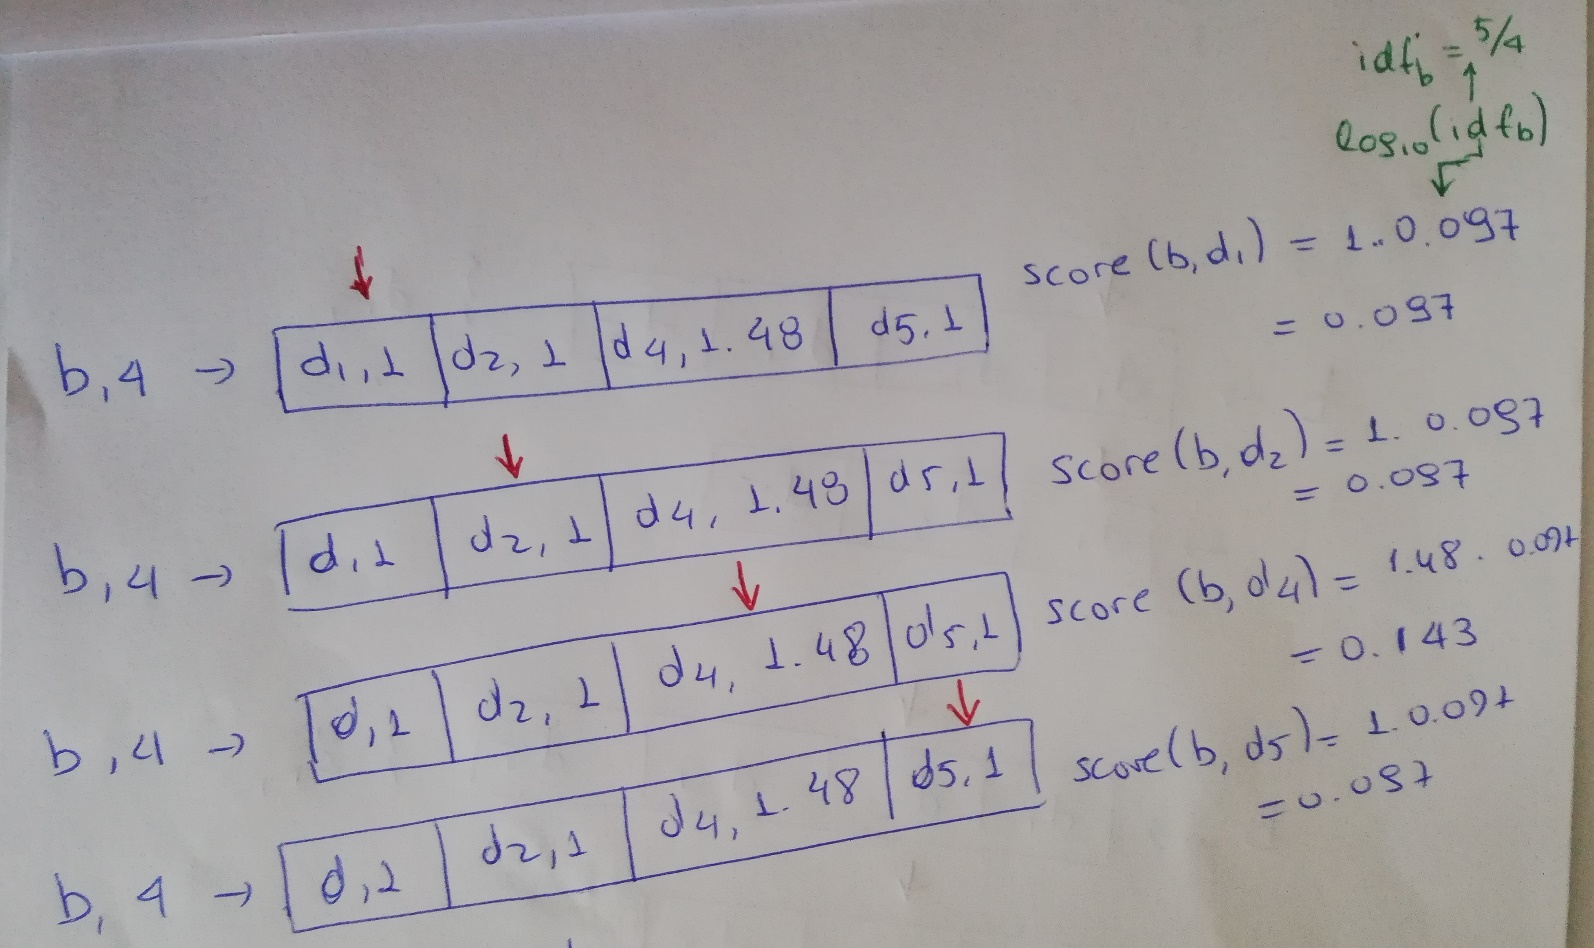 idf_b = 5/4
↑
log₁₀(idf_b)
b,4 → d₁,1 d₂,1 d4,1.48 d5,1 score(b,d₁) = 1..0.097
= 0.097
b,4 → d,1 d₂,1 d4,1.48 d5,1 score(b,d₂) = 1. 0.097
= 0.097
b,4 → d,1 d₂,1 d4,1.48 d5,1 score(b,d4) = 1.48 . 0.097
= 0.143
b,4 → d,1 d₂,1 d4,1.48 d5,1 score(b,d5) = 1.0.097
= 0.097